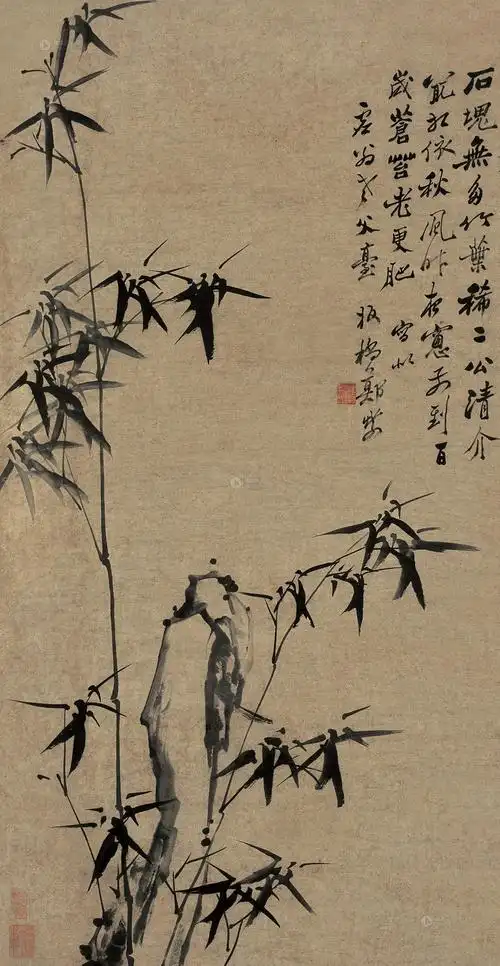 石塊無多竹葉稀二公清介
冣相依秋風昨夜窻前到百
歲蒼苔老更肥 寫似
翁老父臺 板橋鄭燮